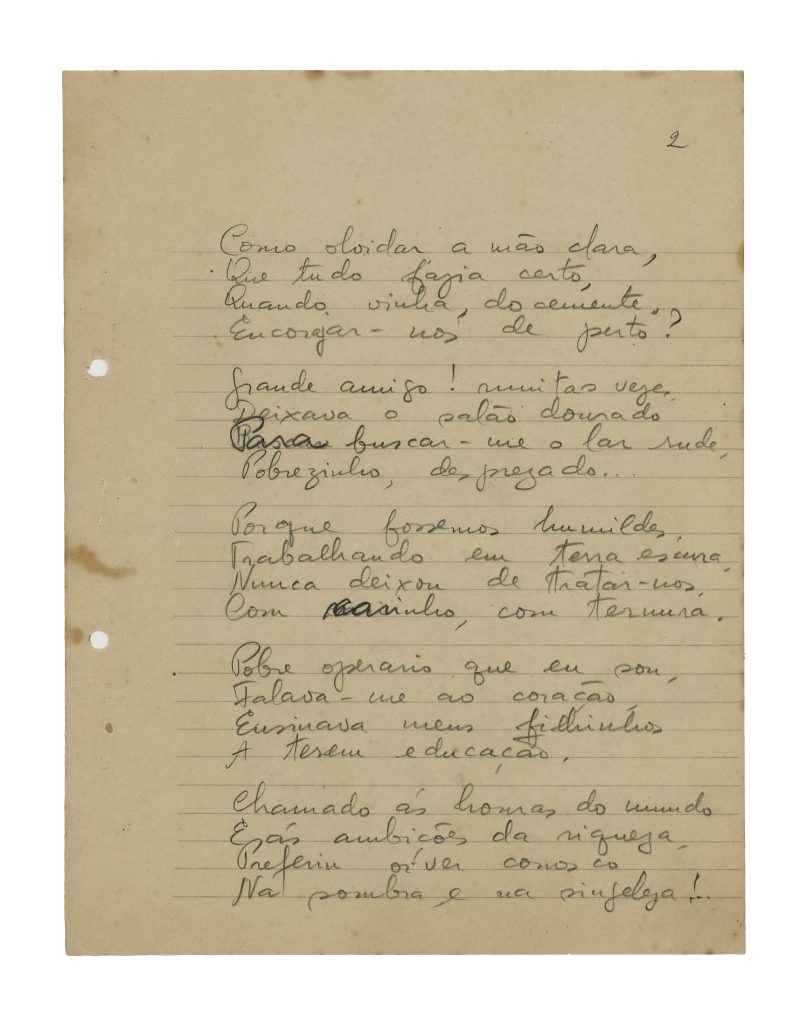 2
Como olvidar a mão clara,
Que tudo fazia certo,
Quando vinha, docemente,
Encorajar-nos de perto?
Grande amigo! muitas vezes
Deixava o salão dourado
Para buscar-me o lar rude,
Pobrezinho, desprezado...
Porque fossemos humildes,
Trabalhando em terra escura,
Nunca deixou de tratar-nos
Com carinho, com ternura.
Pobre operario que eu sou,
Falava-me ao coração,
Ensinava meus filhinhos
A terem educação.
Chamado ás honras do mundo
E ás ambições da riqueza,
Preferiu viver conosco
Na sombra e na singeleza!..